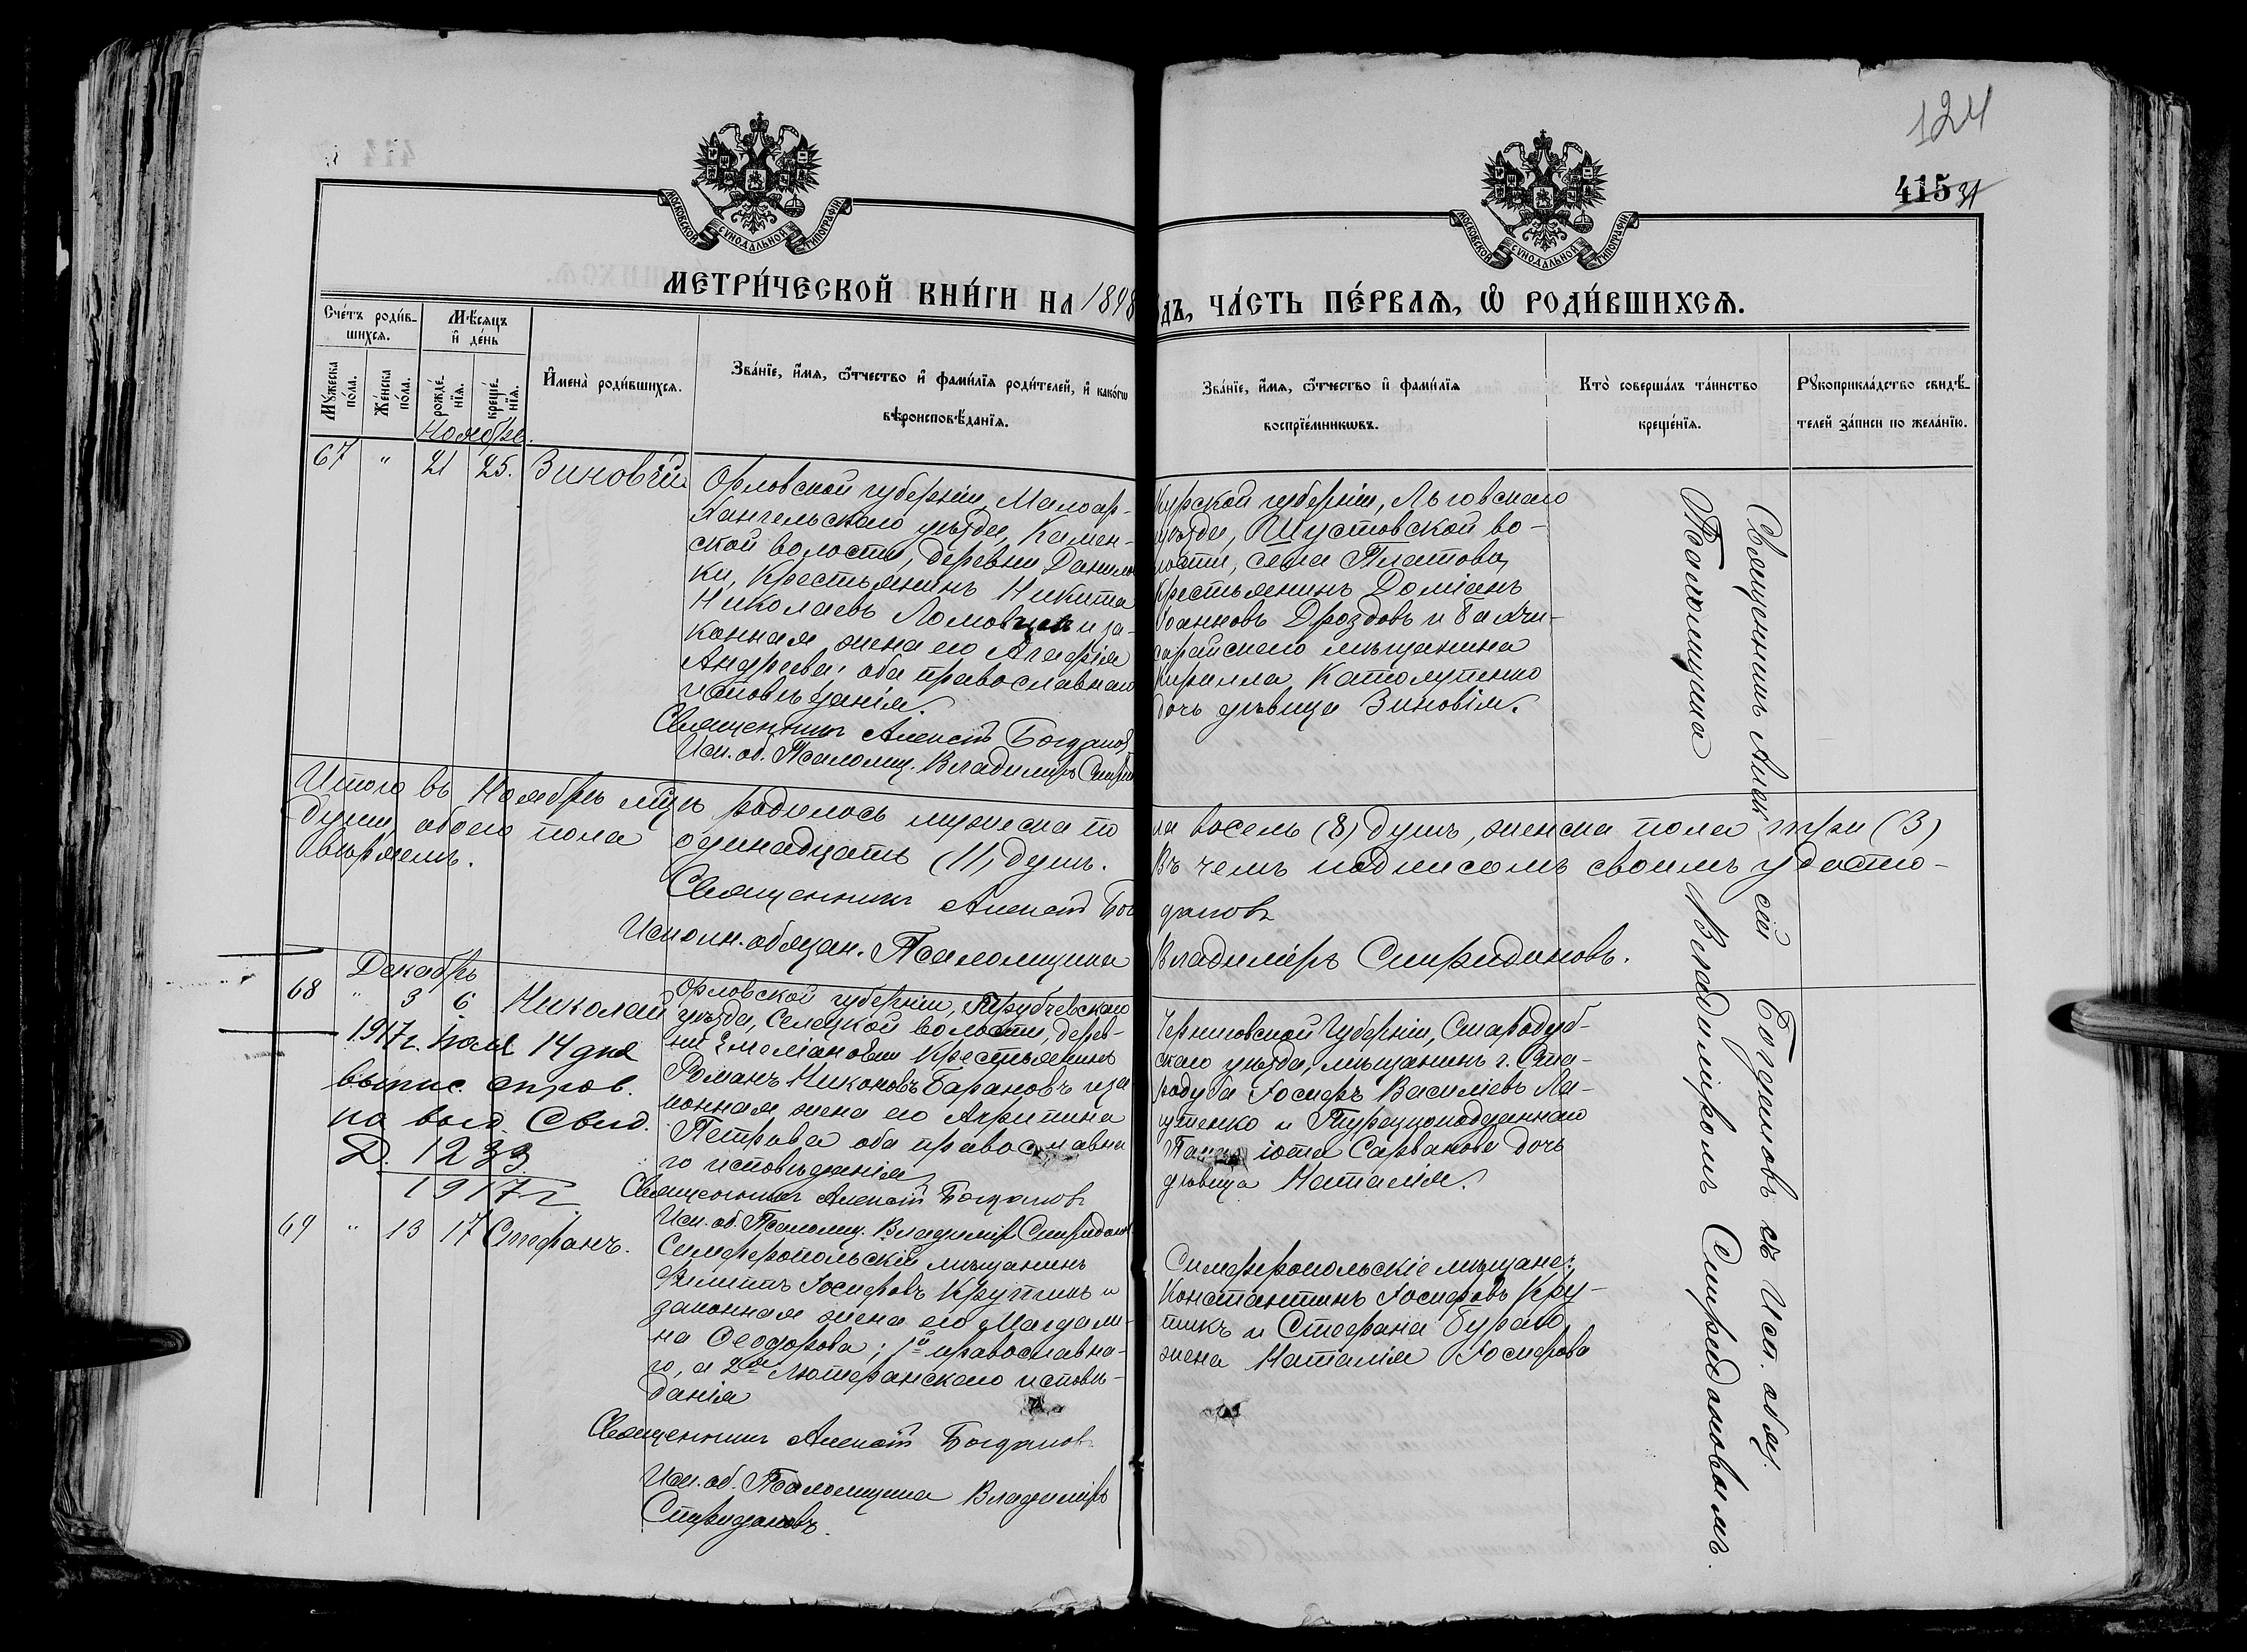 124
415 31
МОСКОВСКОЙ СѴНОДАЛЬНОЙ ТИПОГРАФІИ
МОСКОВСКОЙ СѴНОДАЛЬНОЙ ТИПОГРАФІИ
МЕТРИ́ЧЕСКОЙ КНИ́ГИ НА 1898
ДЪ, ЧА́СТЬ ПЕ́РВАѦ, Ѡ РОДИ́ВШИХСѦ.
Сче́тъ роди́в-
шихсѧ.
Мѣ́сѧцъ
и҆ де́нь
Мꙋ́жеска по́ла.
Же́нска по́ла.
рожде́-нїѧ.
креще́-нїѧ.
И҆мена̀ роди́вшихсѧ.
Зва́нїе, и҆́мѧ, ѻ҆́тчество и҆ фами́лїѧ роди́телей, и҆ како́гѡ
вѣроисповѣ́данїѧ.
Зва́нїе, и҆́мѧ, ѻ҆́тчество и҆ фами́лїѧ
воспрїе́мникѡвъ.
Кто̀ соверша́лъ та́инство
креще́нїѧ.
Рꙋкоприкла́дство свидѣ́-
телей за́писи по жела́нїю.
Ноябрь.
67 " 21 25. Зиновій
Орловской губерніи, Малоар-
хангельскаго уѣзда, Камен-
ской волости, деревни Данилов
ки, крестьянинъ Никита
Николаевъ и за-
конная жена его Агафія
Андреева; оба православнаго
исповѣданія.
Священникъ Алексій Богданов
Исп. об. Псаломщ. Владимиръ Спирид
Курской губерніи, Льговскаго
уѣзда, Шустовской во-
лости, села Платова,
крестьянинъ Доміанъ
Іоанновъ Дроздовъ и Бахчи-
сарайскаго мѣщанина
Кирилла Католупенко
дочь дѣвица Зиновія.
Священникъ Алексій Богдановъ съ Исп. обяз.
Псаломщика Владиміромъ Спиридоновымъ.
Итого въ Ноябрѣ мѣсцѣ родилось мужеска по
ла восемь (8) душъ, женска пола три (3)
души, обоего пола одинадцать (11) душъ.
Въ чемъ подписомъ своимъ удосто-
вѣряемъ.
Священникъ Алексій Бог
дановъ
Исполн. обязан. Псаломщика
Владиміръ Спиридоновъ.
Декабрь
68 " 3 6 Николай
Орловской губерніи, Трубчевскаго
уѣзда, Селецкой волости, дерев-
ни Емеліановки крестьянинъ
Романъ Никоновъ Барановъ и за
конная жена его Акрипина
Петрова оба православна
го исповѣданія
Священникъ Алексій Богдановъ
Исп. об. Псаломщ. Владимір Спиридонов
1917 г. 14 дня
выпис. справ.
по выд. Свид.
Д. 1233
1917 г.
Черниговской Губерніи, Стародуб-
скаго уѣзда, мѣщанинъ г. Ста-
родуба Іосифъ Василіевъ Ла-
цутенко и Турецкоподданнаго
іота Сарванова дочь
дѣвица Наталія.
69 " 13 17 Стефанъ.
Симферопольскій мѣщанинъ
Филиппъ Іосифовъ Крупикъ и
законная жена его Магдали-
на Ѳеодорова; 1й православна-
го, а 2я Лютеранскаго исповѣ-
данія
Священникъ Алексій Богданов
Исп. об. Псаломщика Владиміръ
Спиридоновъ.
Симферопольскіе мѣщане:
Константинъ Іосифовъ Кру-
пикъ и Стефана Бураго
жена Наталія Іосифова